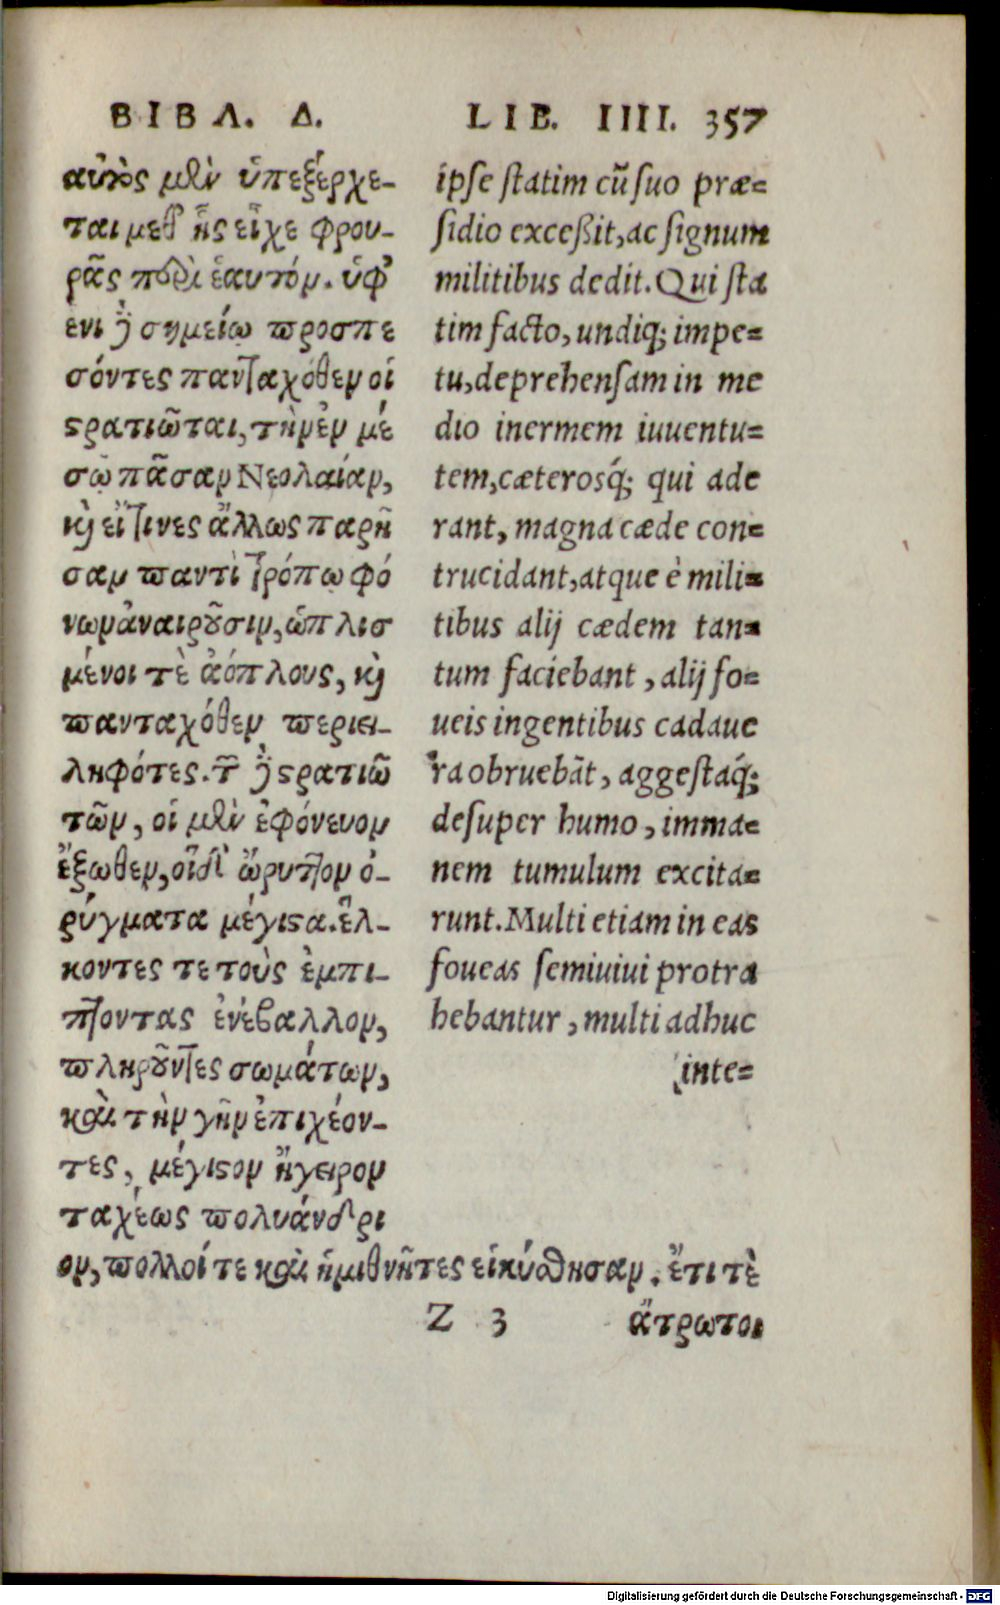 ΒΙΒΛ. Δ.
αὐτὸς μὲν ὑπεξέρχε-
ται μεθ' ἧς εἶχε φρου-
ρᾶς περὶ ἑαυτόν. ὑφ'
ενι ϳ̀ σημείω προσπε
σόντες πανταχόθεν οἱ
ϛρατιῶται, τὴν ἐν μέ
σῳ πᾶσαν Νεολαίαν,
κϳ̀ εἴ τινες ἄλλως παρῆ
σαν παντὶ τρόπῳ φό
νων ἀναιρȣ͂σιν, ὡπλισ
μένοι τὲ ἀόπλους, κϳ̀
πανταχόθεν περιει-
ληφότες. τ̃ ϳ̀ ϛρατιω
τῶν, οἱ μὲν ἐφόνευον
ἔξωθεν, οἱ δ' ὤρυττον ὀ-
ρύγματα μέγιϛα. ἕλ-
κοντες τε τοὺς ἐμπι-
πτοντας ἐνέβαλλον,
πληρȣ͂ντες σωμάτων,
καὶ τὴν γῆν ἐπιχέον-
τες, μέγιϛον ἤγειρον
ταχέως πολυάνδρι
ον, πολλοί τε καὶ ἡμιθνῆτες εἱκύσθησαν. ἔτι τὲ
ἄτρωτοι
LIB. IIII. 357
ipse statim cũ suo præ=
sidio exceßit, ac signum
militibus dedit. Qui sta
tim facto, undiq; impe=
tu, deprehensam in me
dio inermem iuuentu=
tem, cæterosq́; qui ade
rant, magna cæde con=
trucidant, atque è mili=
tibus alij cædem tan=
tum faciebant, alij fo=
ueis ingentibus cadaue
ra obruebãt, aggestaq́;
desuper humo, imma=
nem tumulum excita=
runt. Multi etiam in eas
foueas semiuiui protra
hebantur, multi adhuc
inte=
Z 3
Digitalisierung gefördert durch die Deutsche Forschungsgemeinschaft - DFG